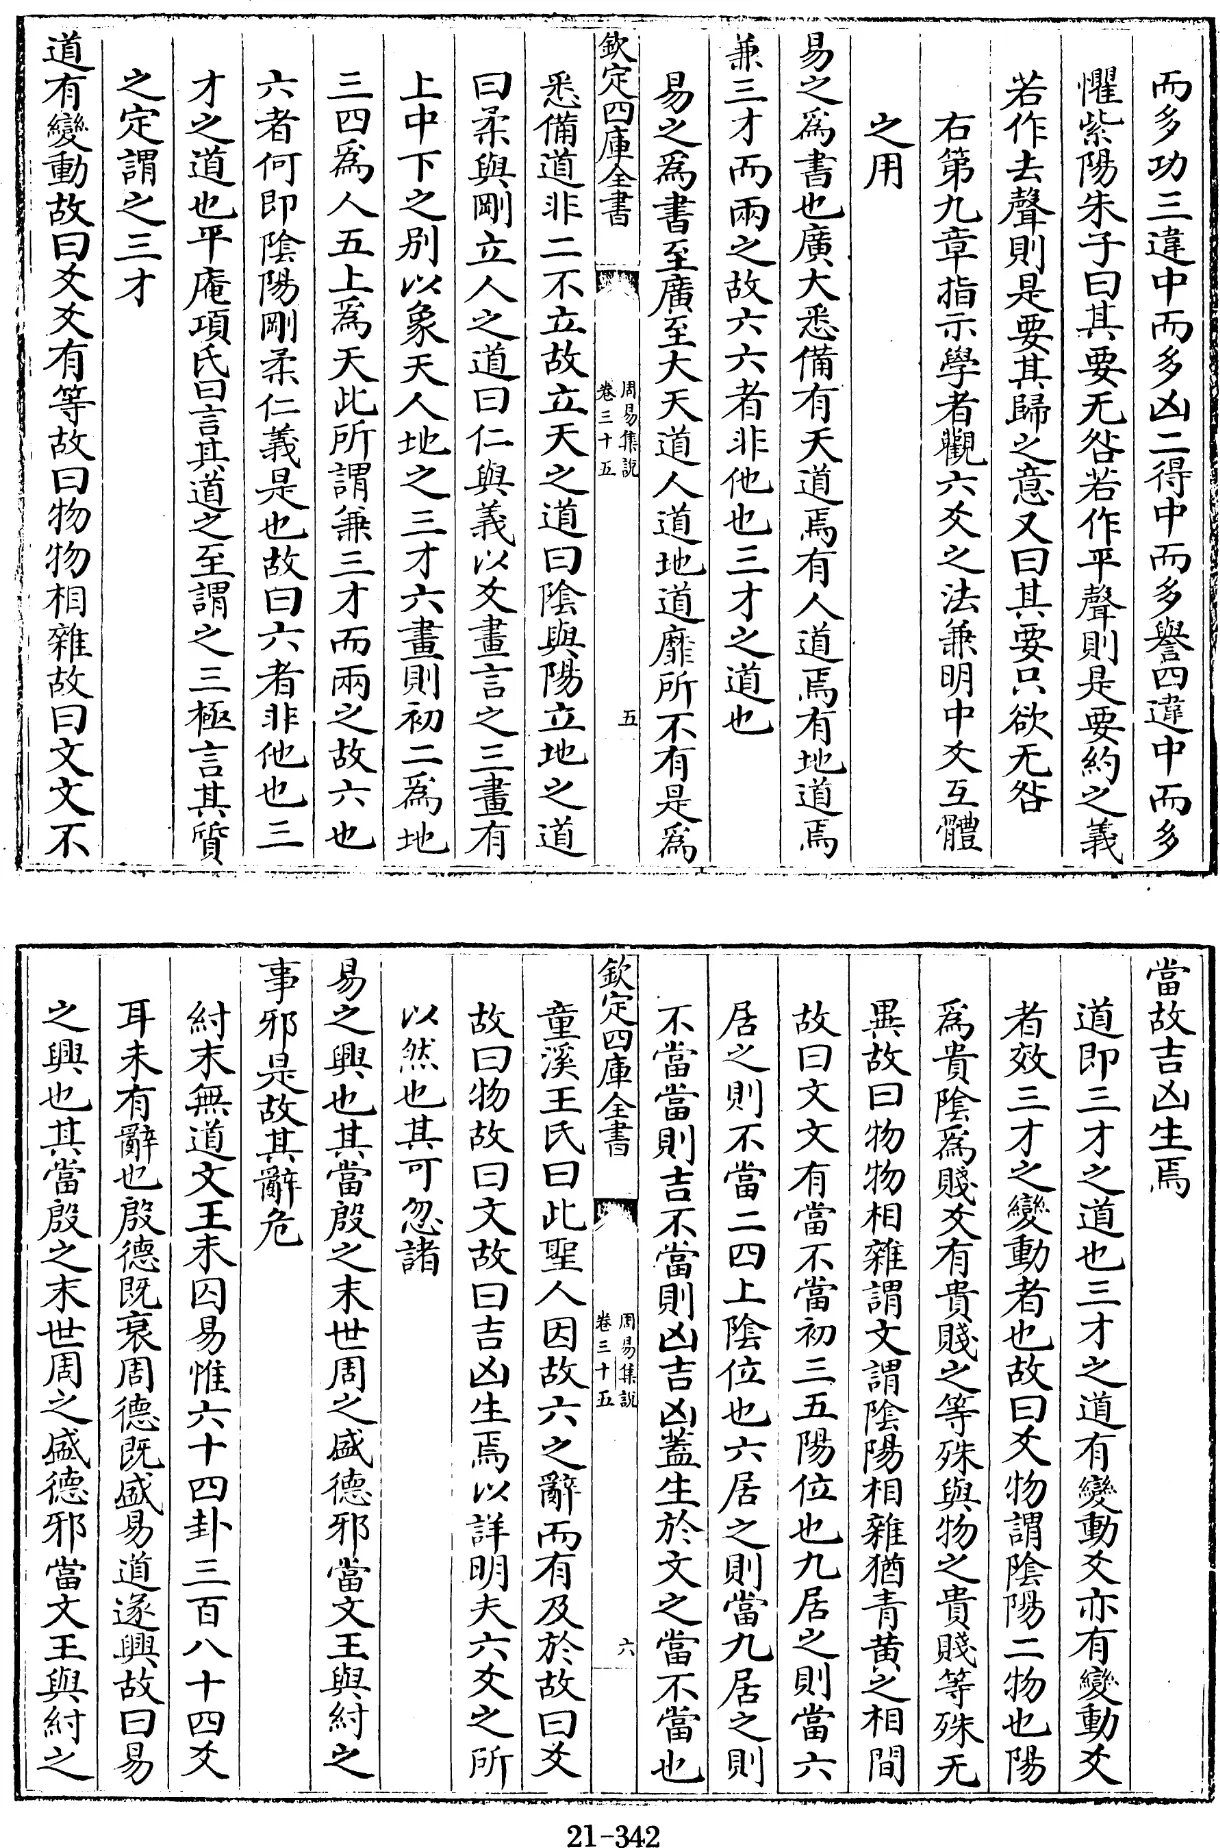 而多功三違中而多凶二得中而多譽四違中而多
懼紫陽朱子曰其要无咎若作平聲則是要約之義
若作去聲則是要其歸之意又曰其要只欲无咎
右第九章指示學者觀六爻之法兼明中爻互體
之用
易之為書也廣大悉備有天道焉有人道焉有地道焉
兼三才而兩之故六六者非他也三才之道也
易之為書至廣至大天道人道地道靡所不有是為
欽定四庫全書
周易集說
卷三十五
五
悉備道非二不立故立天之道曰陰與陽立地之道
曰柔與剛立人之道曰仁與義以爻畫言之三畫有
上中下之別以象天人地之三才六畫則初二為地
三四為人五上為天此所謂兼三才而兩之故六也
六者何即陰陽剛柔仁義是也故曰六者非他也三
才之道也平庵項氏曰言其道之至謂之三極言其質
之定謂之三才
道有變動故曰爻爻有等故曰物物相雜故曰文文不
當故吉凶生焉
道即三才之道也三才之道有變動爻亦有變動爻
者效三才之變動者也故曰爻物謂陰陽二物也陽
為貴陰為賤爻有貴賤之等殊與物之貴賤等殊无
異故曰物物相雜謂文謂陰陽相雜猶青黃之相間
故曰文文有當不當初三五陽位也九居之則當六
居之則不當二四上陰位也六居之則當九居之則
不當當則吉不當則凶吉凶蓋生於文之當不當也
欽定四庫全書
周易集說
卷三十五
六
童溪王氏曰此聖人因故六之辭而有及於故曰爻
故曰物故曰文故曰吉凶生焉以詳明夫六爻之所
以然也其可忽諸
易之興也其當殷之末世周之盛德邪當文王與紂之
事邪是故其辭危
紂末無道文王未囚易惟六十四卦三百八十四爻
耳未有辭也殷德既衰周德既盛易道遂興故曰易
之興也其當殷之末世周之盛德邪當文王與紂之
21-342